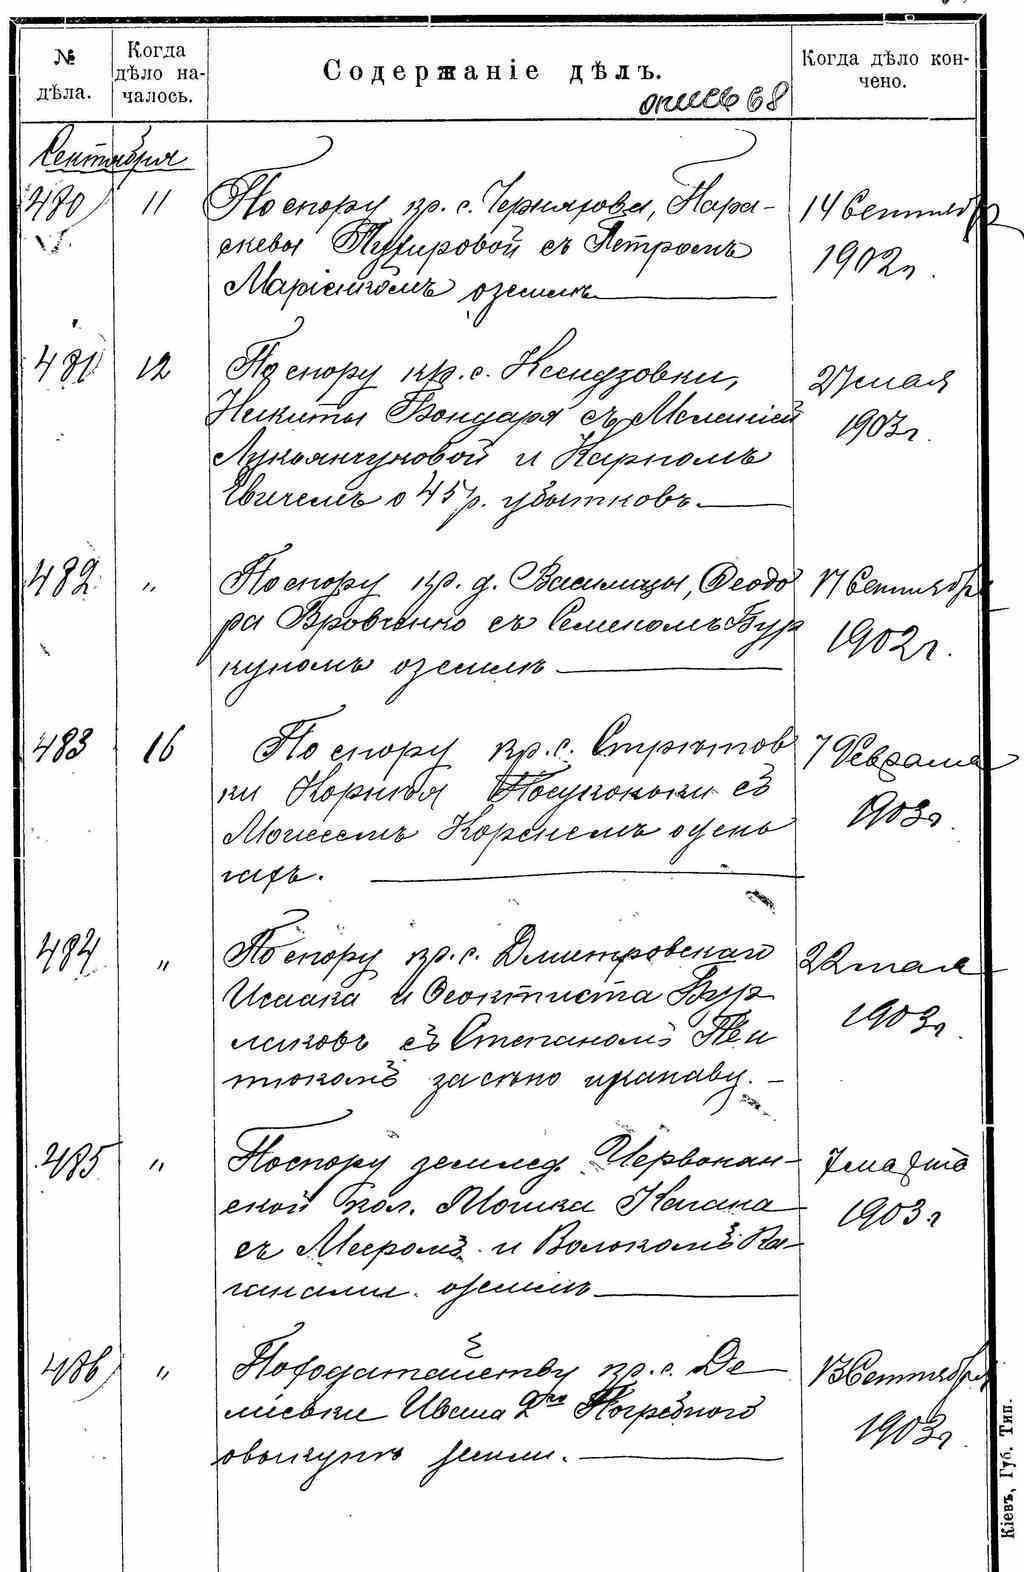 № дѣла.
Когда дѣло началось.
Содержаніе дѣлъ.
Когда дѣло кончено.
опись 68
Сентября
480 11 По спору кр. с. Чернявки, Пара-
скевы с Петромъ
о земли
14 Сентября
1902 г.
481 12 По спору кр. с. Ксендзовки,
Никиты Бондаря съ Меланіей
Лукьянчуковой и Карпомъ
о 45 р. убытковъ.
27 мая
1903 г.
482 " По спору кр. д. Василицы, Феодо
ра Вровченко съ Семеномъ Бур
куномъ о земли
17 Сентября
1902 г.
483 16 По спору кр. с. Стрютов
ки Корнѣя съ
Моисеемъ Корсиемъ о день
гахъ.
7 Февраля
1903 г
484 " По спору кр. с. Дмитровскаго
Исаака и Феоктиста Бур
лаковъ съ Степаномъ
за сѣно и канаву.
22 мая
1903 г
485 " По спору землед. Червонан-
ской кол. Мошка Кагана
съ Мееромъ и Волькомъ Ка-
ганами о земли
7 марта
1903 г
486 " По ходатайству кр. с. Де-
міевки Ивана 2го Погребного
о выкупѣ земли.
13 Сентября
1903 г
Кіевъ, Губ. Тип.